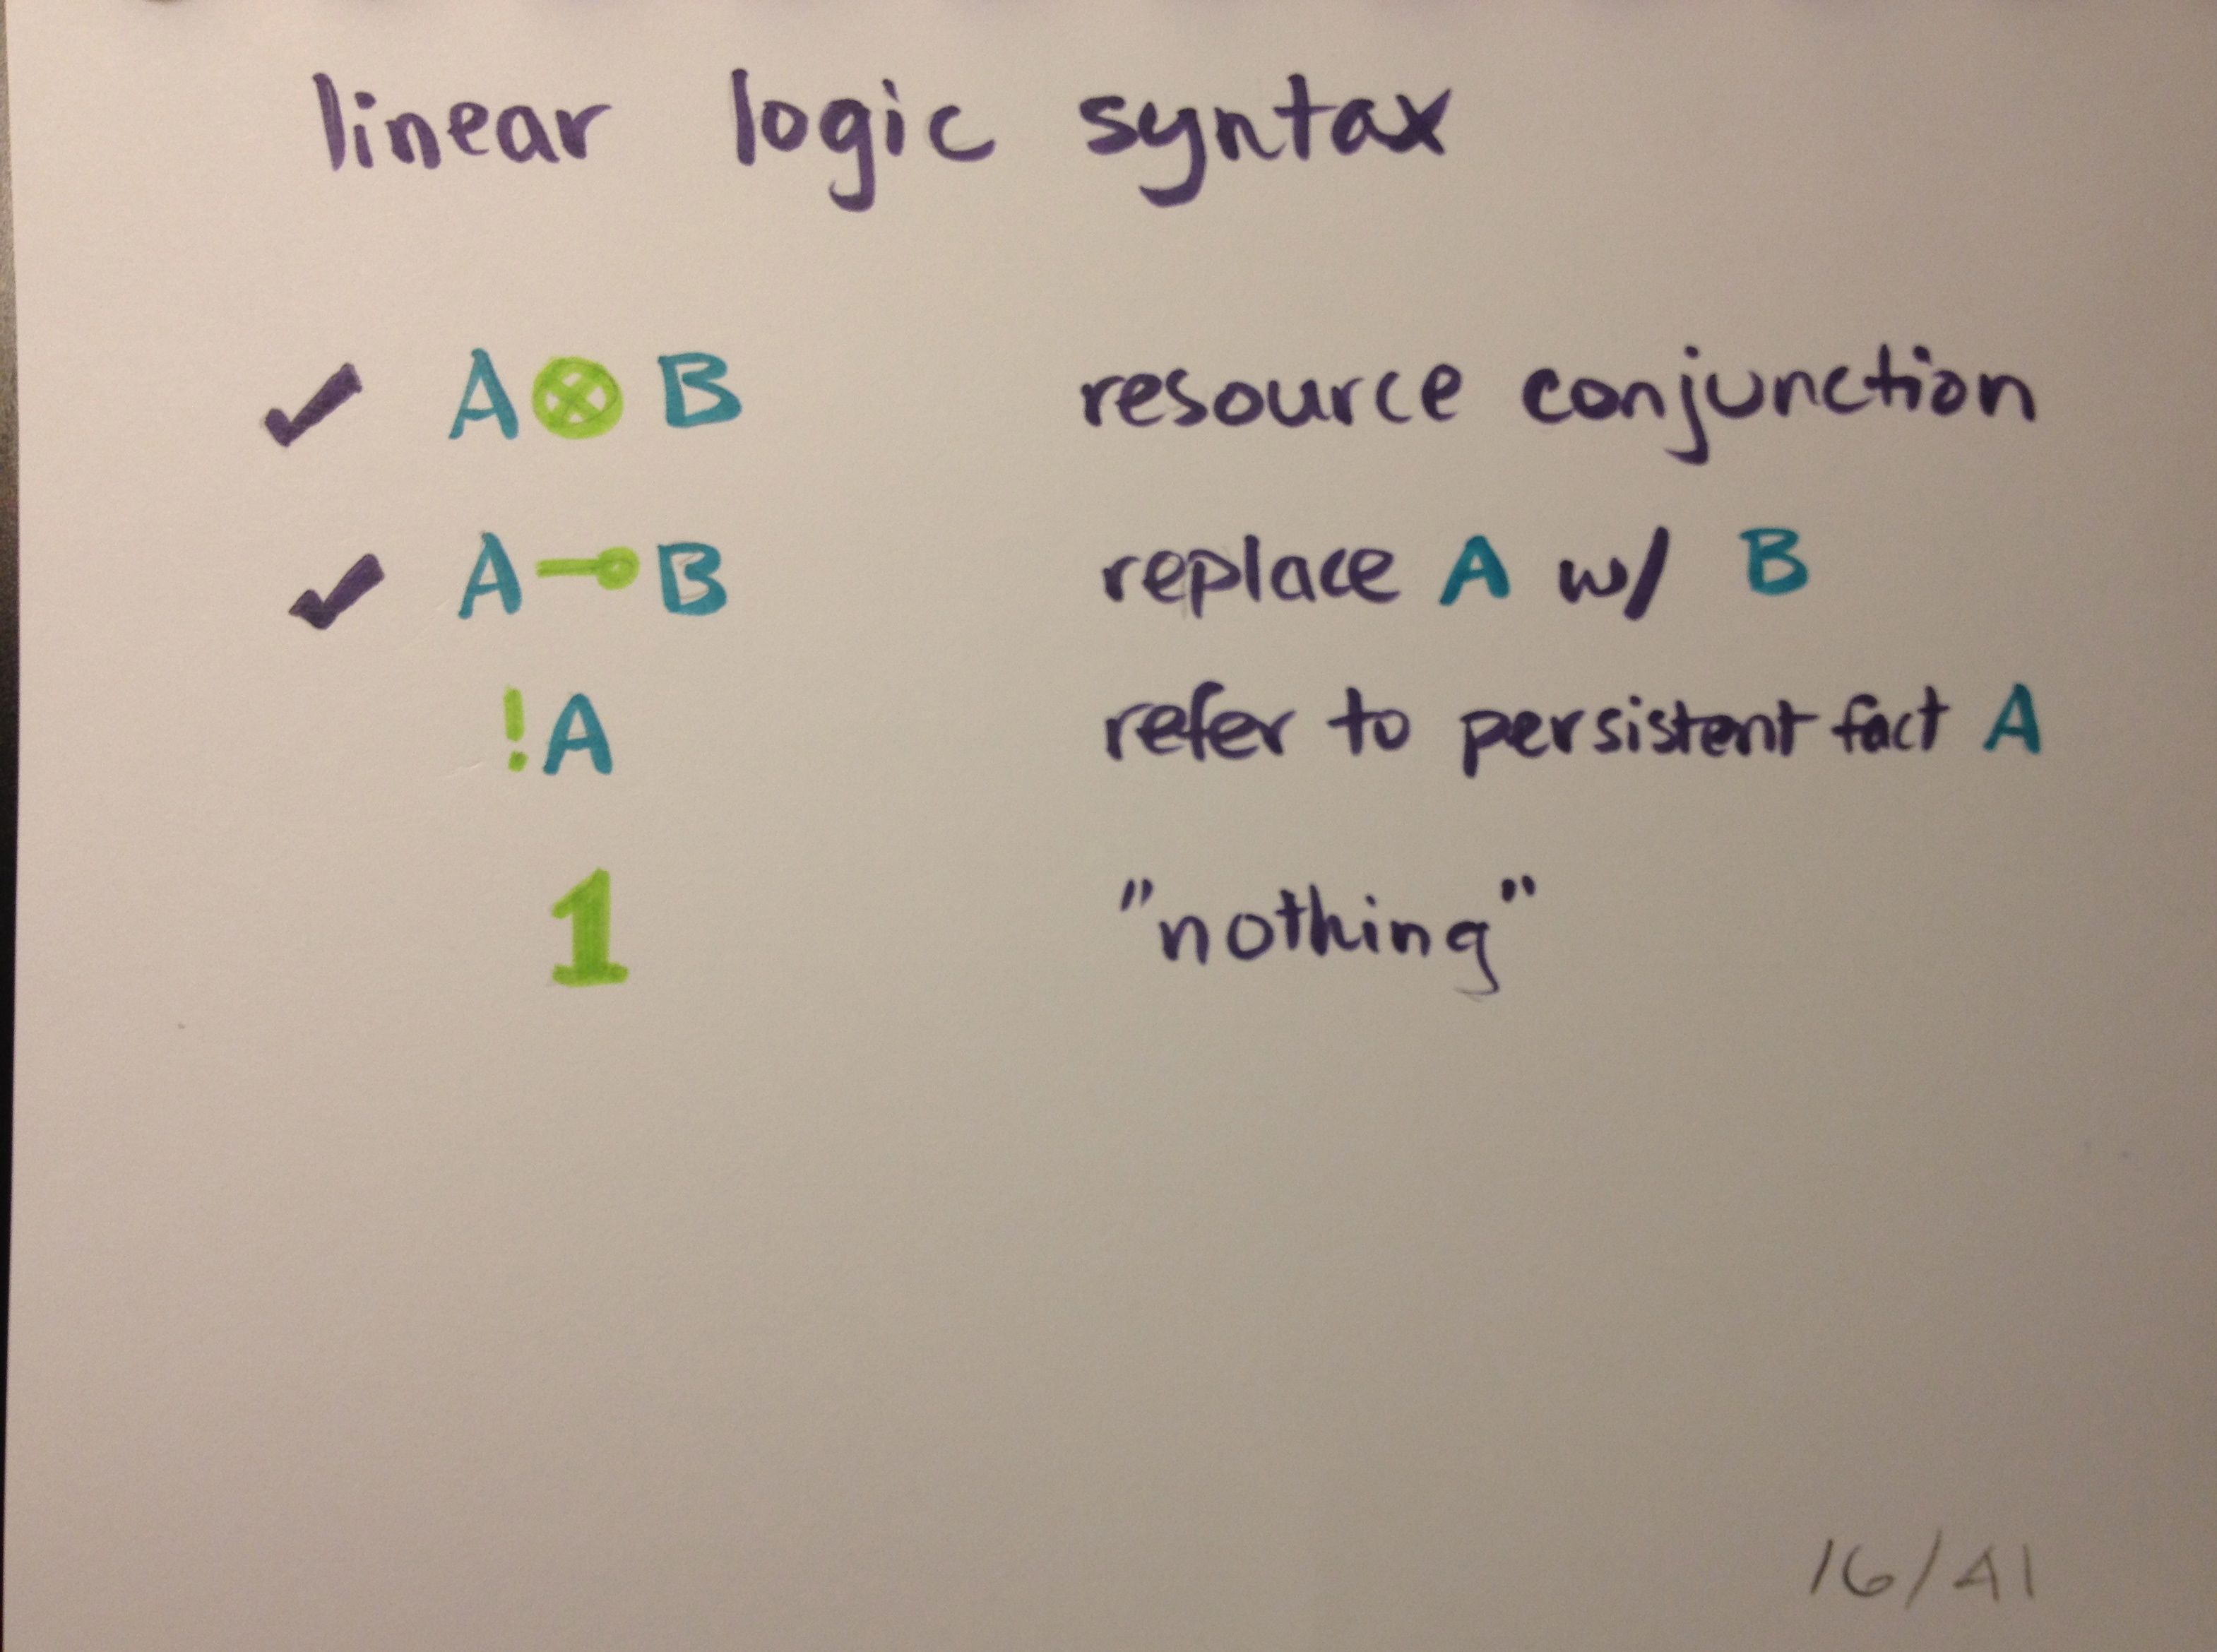 linear logic syntax
✓ A ⊗ B resource conjunction
✓ A ⊸ B replace A w/ B
!A refer to persistent fact A
1 "nothing"
16/41